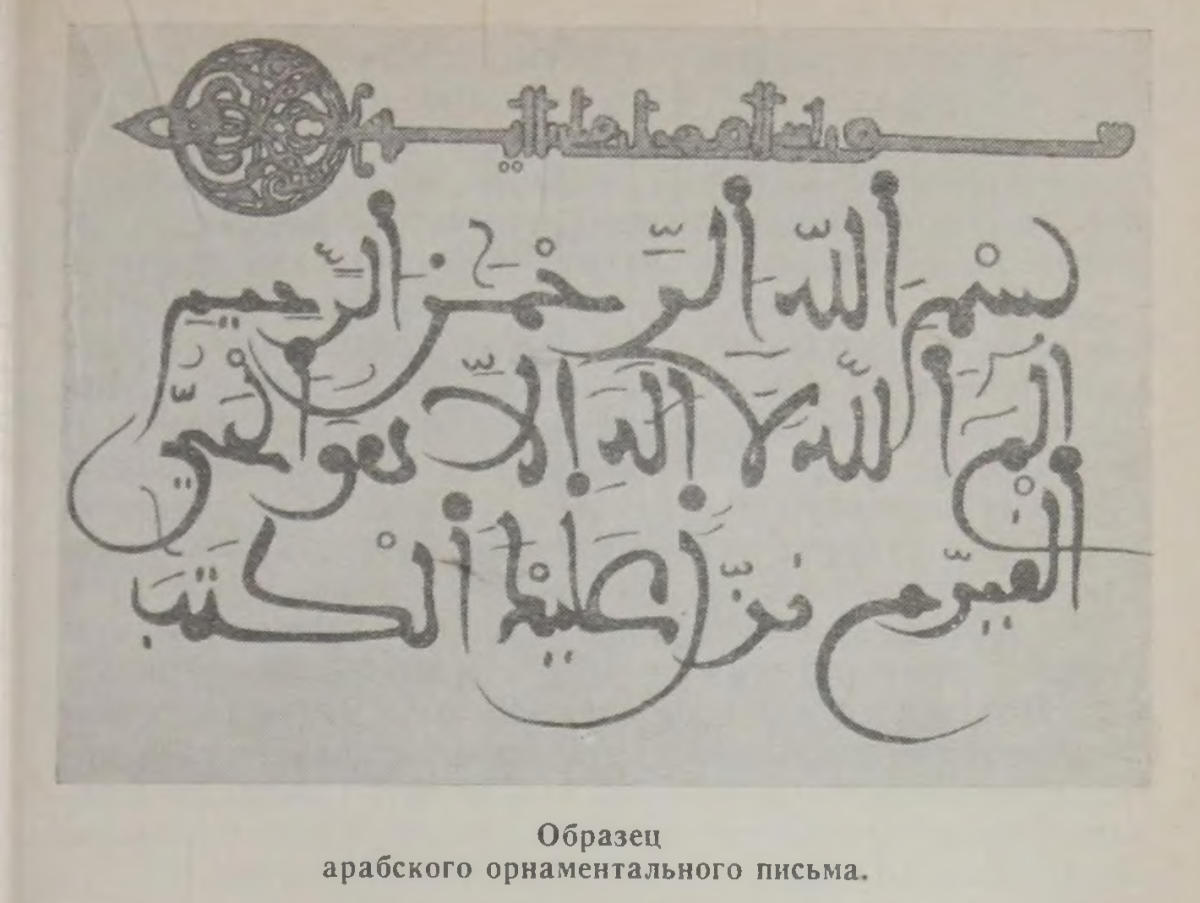 بِسْمِ اللَّهِ الرَّحْمَٰنِ الرَّحِيمِ
الم اللَّهُ لَا إِلَٰهَ إِلَّا هُوَ الْحَيُّ
الْقَيُّومُ نَزَّلَ عَلَيْكَ الْكِتَٰبَ
Образец
арабского орнаментального письма.